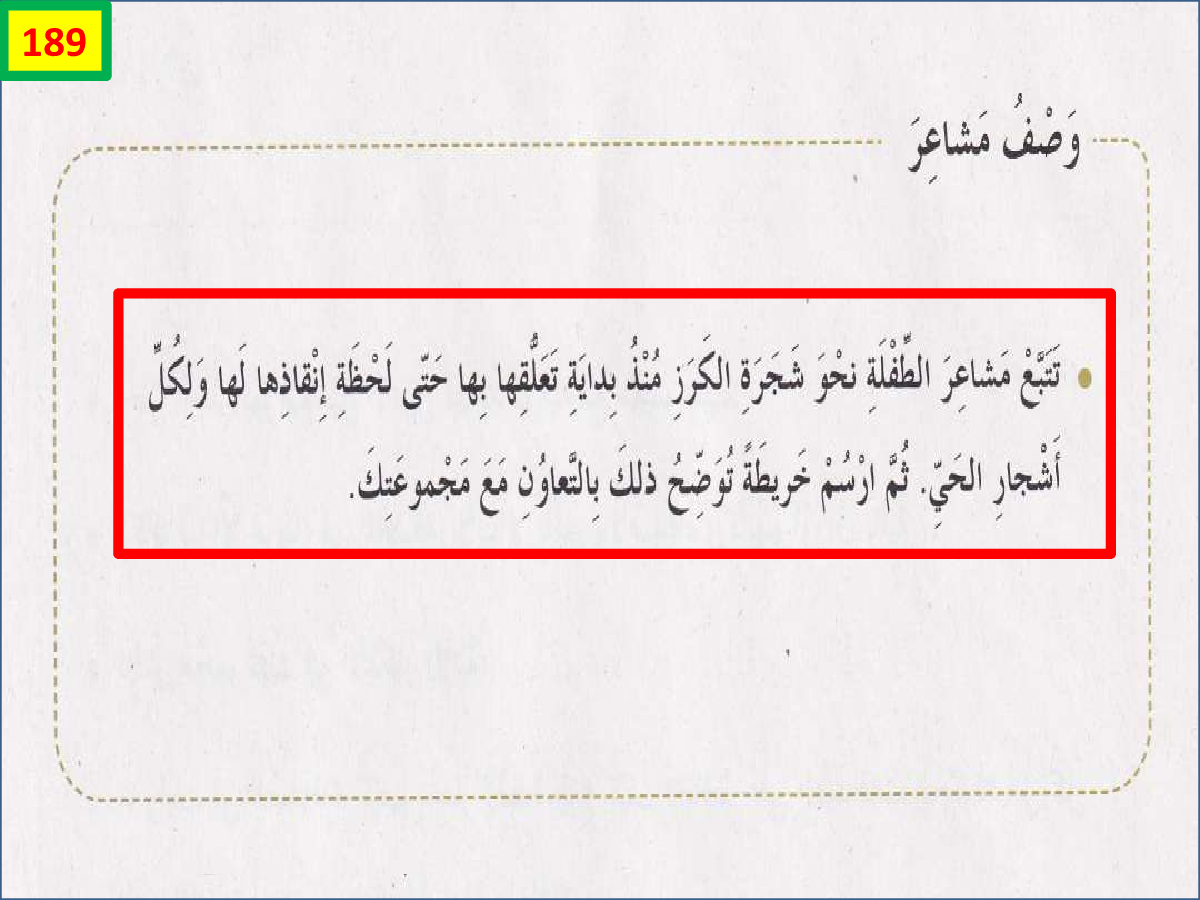 189
وَصْفُ مَشاعِرَ
● تَتَبَّعْ مَشاعِرَ الطِّفْلَةِ نحْوَ شَجَرَةِ الكَرَزِ مُنْذُ بِدايَةِ تَعَلُّقِها بِها حَتّى لَحْظَةِ إِنْقاذِها لَها وَلِكُلِّ
أَشْجارِ الحَيِّ. ثُمَّ ارْسُمْ خَريطَةً تُوَضِّحُ ذلكَ بِالتَّعاوُنِ مَعَ مَجْموعَتِكَ.